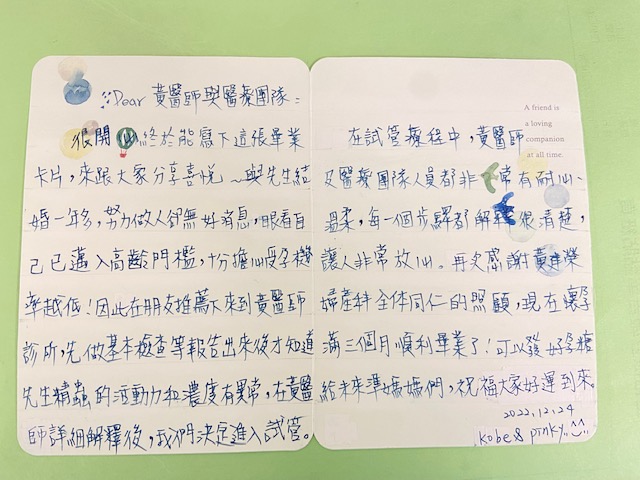 Dear 黃醫師與醫療團隊:
很開心終於能寫下這張畢業
卡片,來跟大家分享喜悅~與先生結
婚一年多,努力做人卻無好消息,眼看自
己已邁入高齡門檻,十分擔心受孕機
率越低!因此在朋友推薦下來到黃醫師
診所,先做基本檢查等報告出來後才知道
先生精蟲的活動力和濃度有異常,在黃醫
師詳細解釋後,我們決定進入試管。
A friend is
a loving
companion
at all time.
在試管療程中,黃醫師
及醫療團隊人員都非常有耐心、
溫柔,每一個步驟都解釋很清楚,
讓人非常放心。再次感謝黃建榮
婦產科全体同仁的照顧,現在懷孕
滿三個月順利畢業了!可以發好孕糖
給未來準媽媽們,祝福大家好運到來。
2022.12.24
kobe & pinky